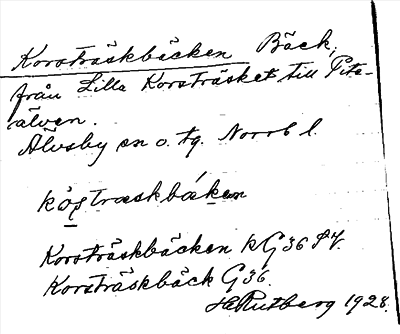 Korsträskbäcken Bäck,
från Lilla Korsträsket till Pite-
älven.
Älvsby sn o. tg. Norrb l.
Korsträskbäcken kG36 SV.
Korsträskbäck G36.
HRutberg 1928.